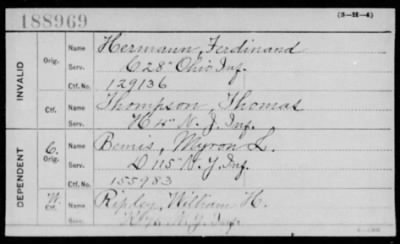 188969
(3-28-4)
INVALID
Orig.
Name
Hermann, Ferdinand
Serv.
C 28" Ohio Inf.
Ctf. No.
129136
Ctf.
Name
Thompson, Thomas
Serv.
H 4" N. J. Inf.
DEPENDENT
C.
Orig.
Name
Bemis, Myron L.
Serv.
D 115" N. Y. Inf.
Ctf. No.
155983
W.
Ctf.
Name
Ripley, William H.
Serv.
N. Y. Inf.